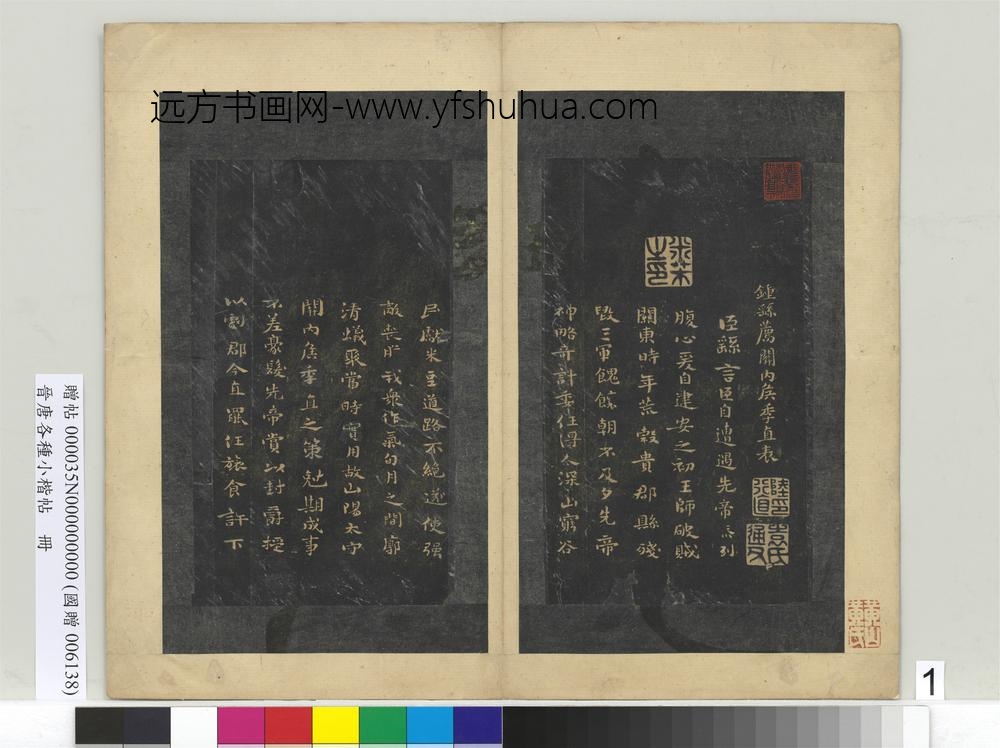 远方书画网-www.yfshuhua.com
鍾繇薦關內侯季直表
臣繇言臣自遭遇先帝忝列
腹心爰自建安之初王師破賊
關東時年荒穀貴郡縣殘
毀三軍餽饟朝不及夕先帝
神略奇計委任得人深山窮谷
民獻米豆道路不絕遂使强
敵喪膽我衆作氣旬月之間廓
清蟻聚當時實用故山陽太守
關內侯季直之策尅期成事
不差豪髮先帝賞以封爵授
以劇郡今直罷任旅食許下
贈帖 000035N000000000 (國贈 006138)
晉唐各種小楷帖 冊
1